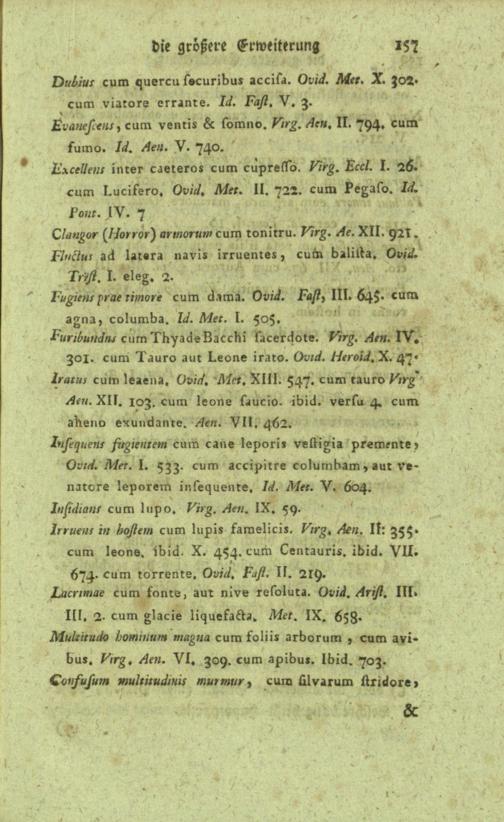 die größere Erweiterung 157
Dubius cum quercu ſecuribus acciſa. Ovid. Met. X. 302.
cum viatore errante. Id. Faſt. V. 3.
Evaneſcens, cum ventis & ſomno. Virg. Aen. II. 794. cum
fumo. Id. Aen. V. 740.
Excellens inter caeteros cum cupreſſo. Virg. Eccl. I. 26.
cum Lucifero. Ovid. Met. II. 722. cum Pegaſo. Id.
Pont. IV. 7
Clangor (Horror) armorum cum tonitru. Virg. Ae. XII. 921.
Fluctus ad latera navis irruentes, cum baliſta. Ovid.
Triſt. I. eleg. 2.
Fugiens prae timore cum dama. Ovid. Faſt, III. 645. cum
agna, columba. Id. Met. I. 505.
Furibundus cum Thyade Bacchi ſacerdote. Virg. Aen. IV.
301. cum Tauro aut Leone irato. Ovid. Heroid. X. 47.
Iratus cum leaena. Ovid. Met. XIII. 547. cum tauro Virg
Aen. XII. 103. cum leone ſaucio. ibid. verſu 4. cum
aheno exundante. Aen. VII. 462.
Inſequens fugientem cum cane leporis veſtigia premente,
Ovid. Met. I. 533. cum accipitre columbam, aut ve-
natore leporem inſequente. Id. Met. V. 604.
Inſidians cum lupo. Virg. Aen. IX. 59.
Irruens in hoſtem cum lupis famelicis. Virg. Aen. II. 355.
cum leone. ibid. X. 454. cum Centauris. ibid. VII.
674. cum torrente. Ovid. Faſt. II. 219.
Lacrimae cum fonte, aut nive reſoluta. Ovid. Ariſt. III.
III. 2. cum glacie liquefacta. Met. IX. 658.
Multitudo hominum magna cum foliis arborum, cum avi-
bus. Virg. Aen. VI. 309. cum apibus. Ibid. 703.
Confuſum multitudinis murmur, cum ſilvarum ſtridore,
&